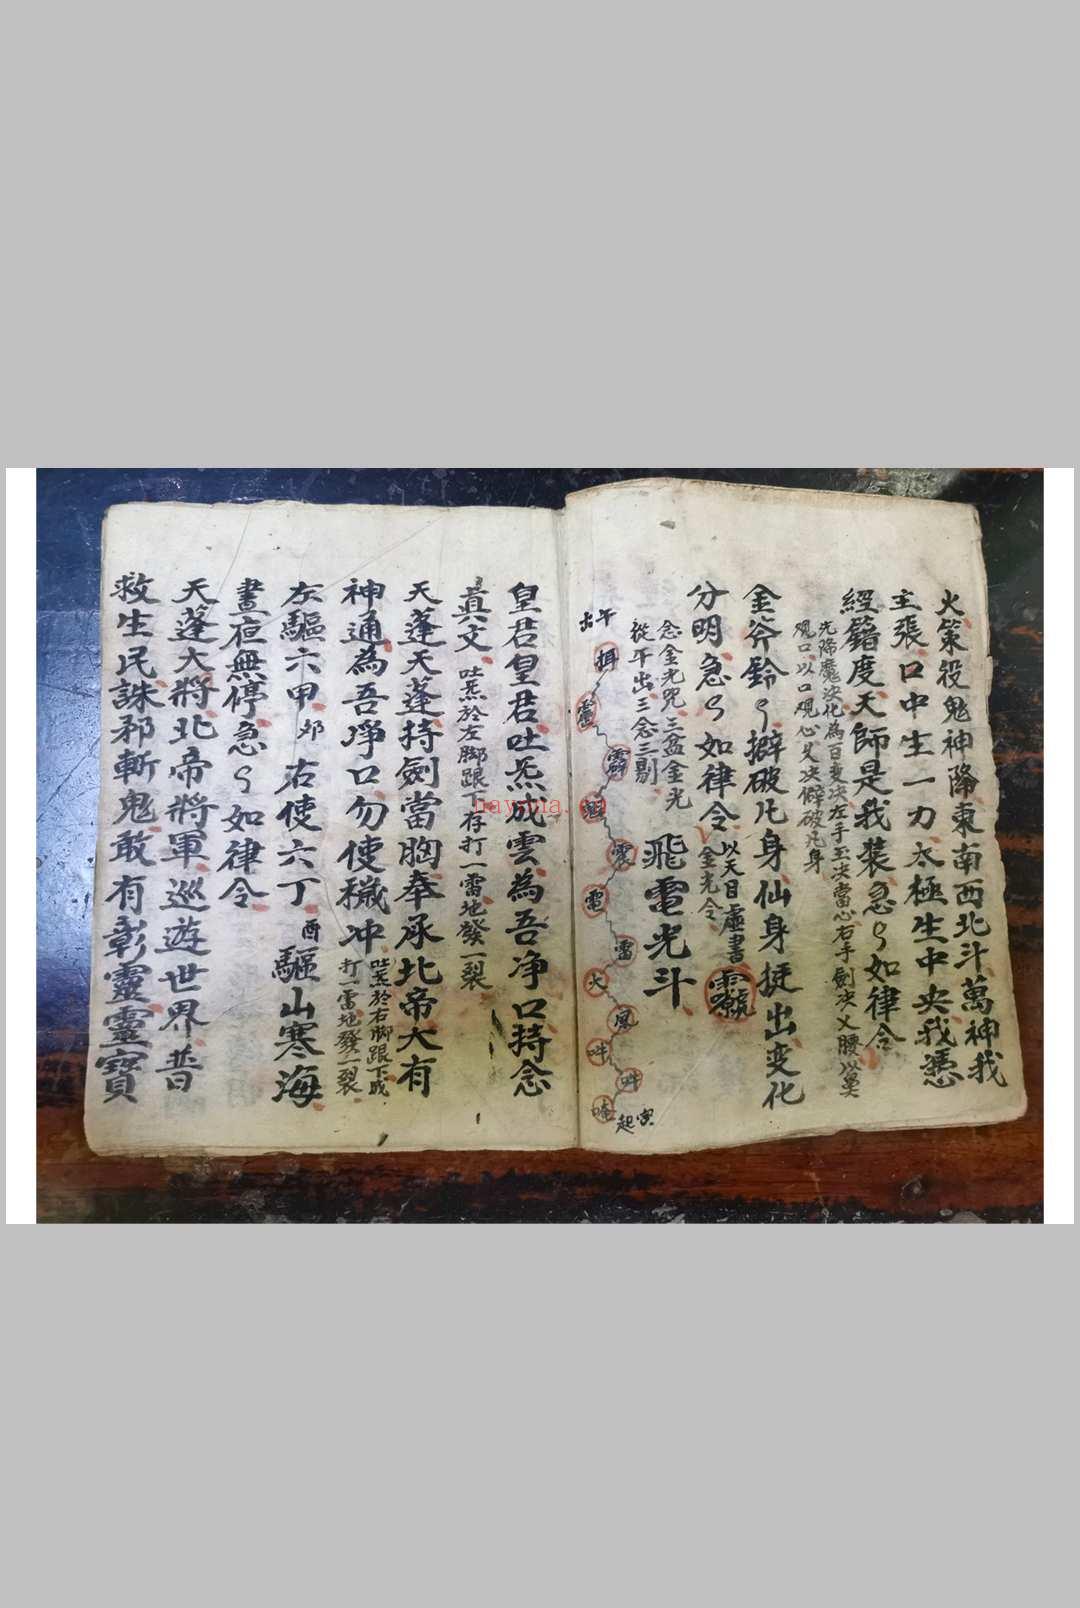 火策役鬼神降東南西北斗萬神我
主張口中生一力太極生中央我憑
經籍度天師是我裝急々如律令
先降魔決化為百变决左手玉决當心右手劍决乂腰以莫
观口以口观心又决僻破凡身
金斧鈴々擗破凡身仙身挺出变化
分明急々如律令以天目虛書
金光令
念金光咒三盆金光
從午出三念三剔
飛電光斗
午出
揖
震
電
雷
火
風
吽
吽
唵
寅起
皇君皇君吐炁成雲為吾净口持念
真文吐炁於左脚跟下存打一雷地發一裂
天蓬天蓬持劍當胸奉承北帝大有
神通為吾净口勿使穢冲吐炁於右脚跟下成
打一雷地發一裂
左驅六甲卯右使六丁酉驅山寒海
晝夜無停急々如律令
天蓬大將北帝將軍巡遊世界普
救生民誅邪斬鬼敢有彰靈靈寶